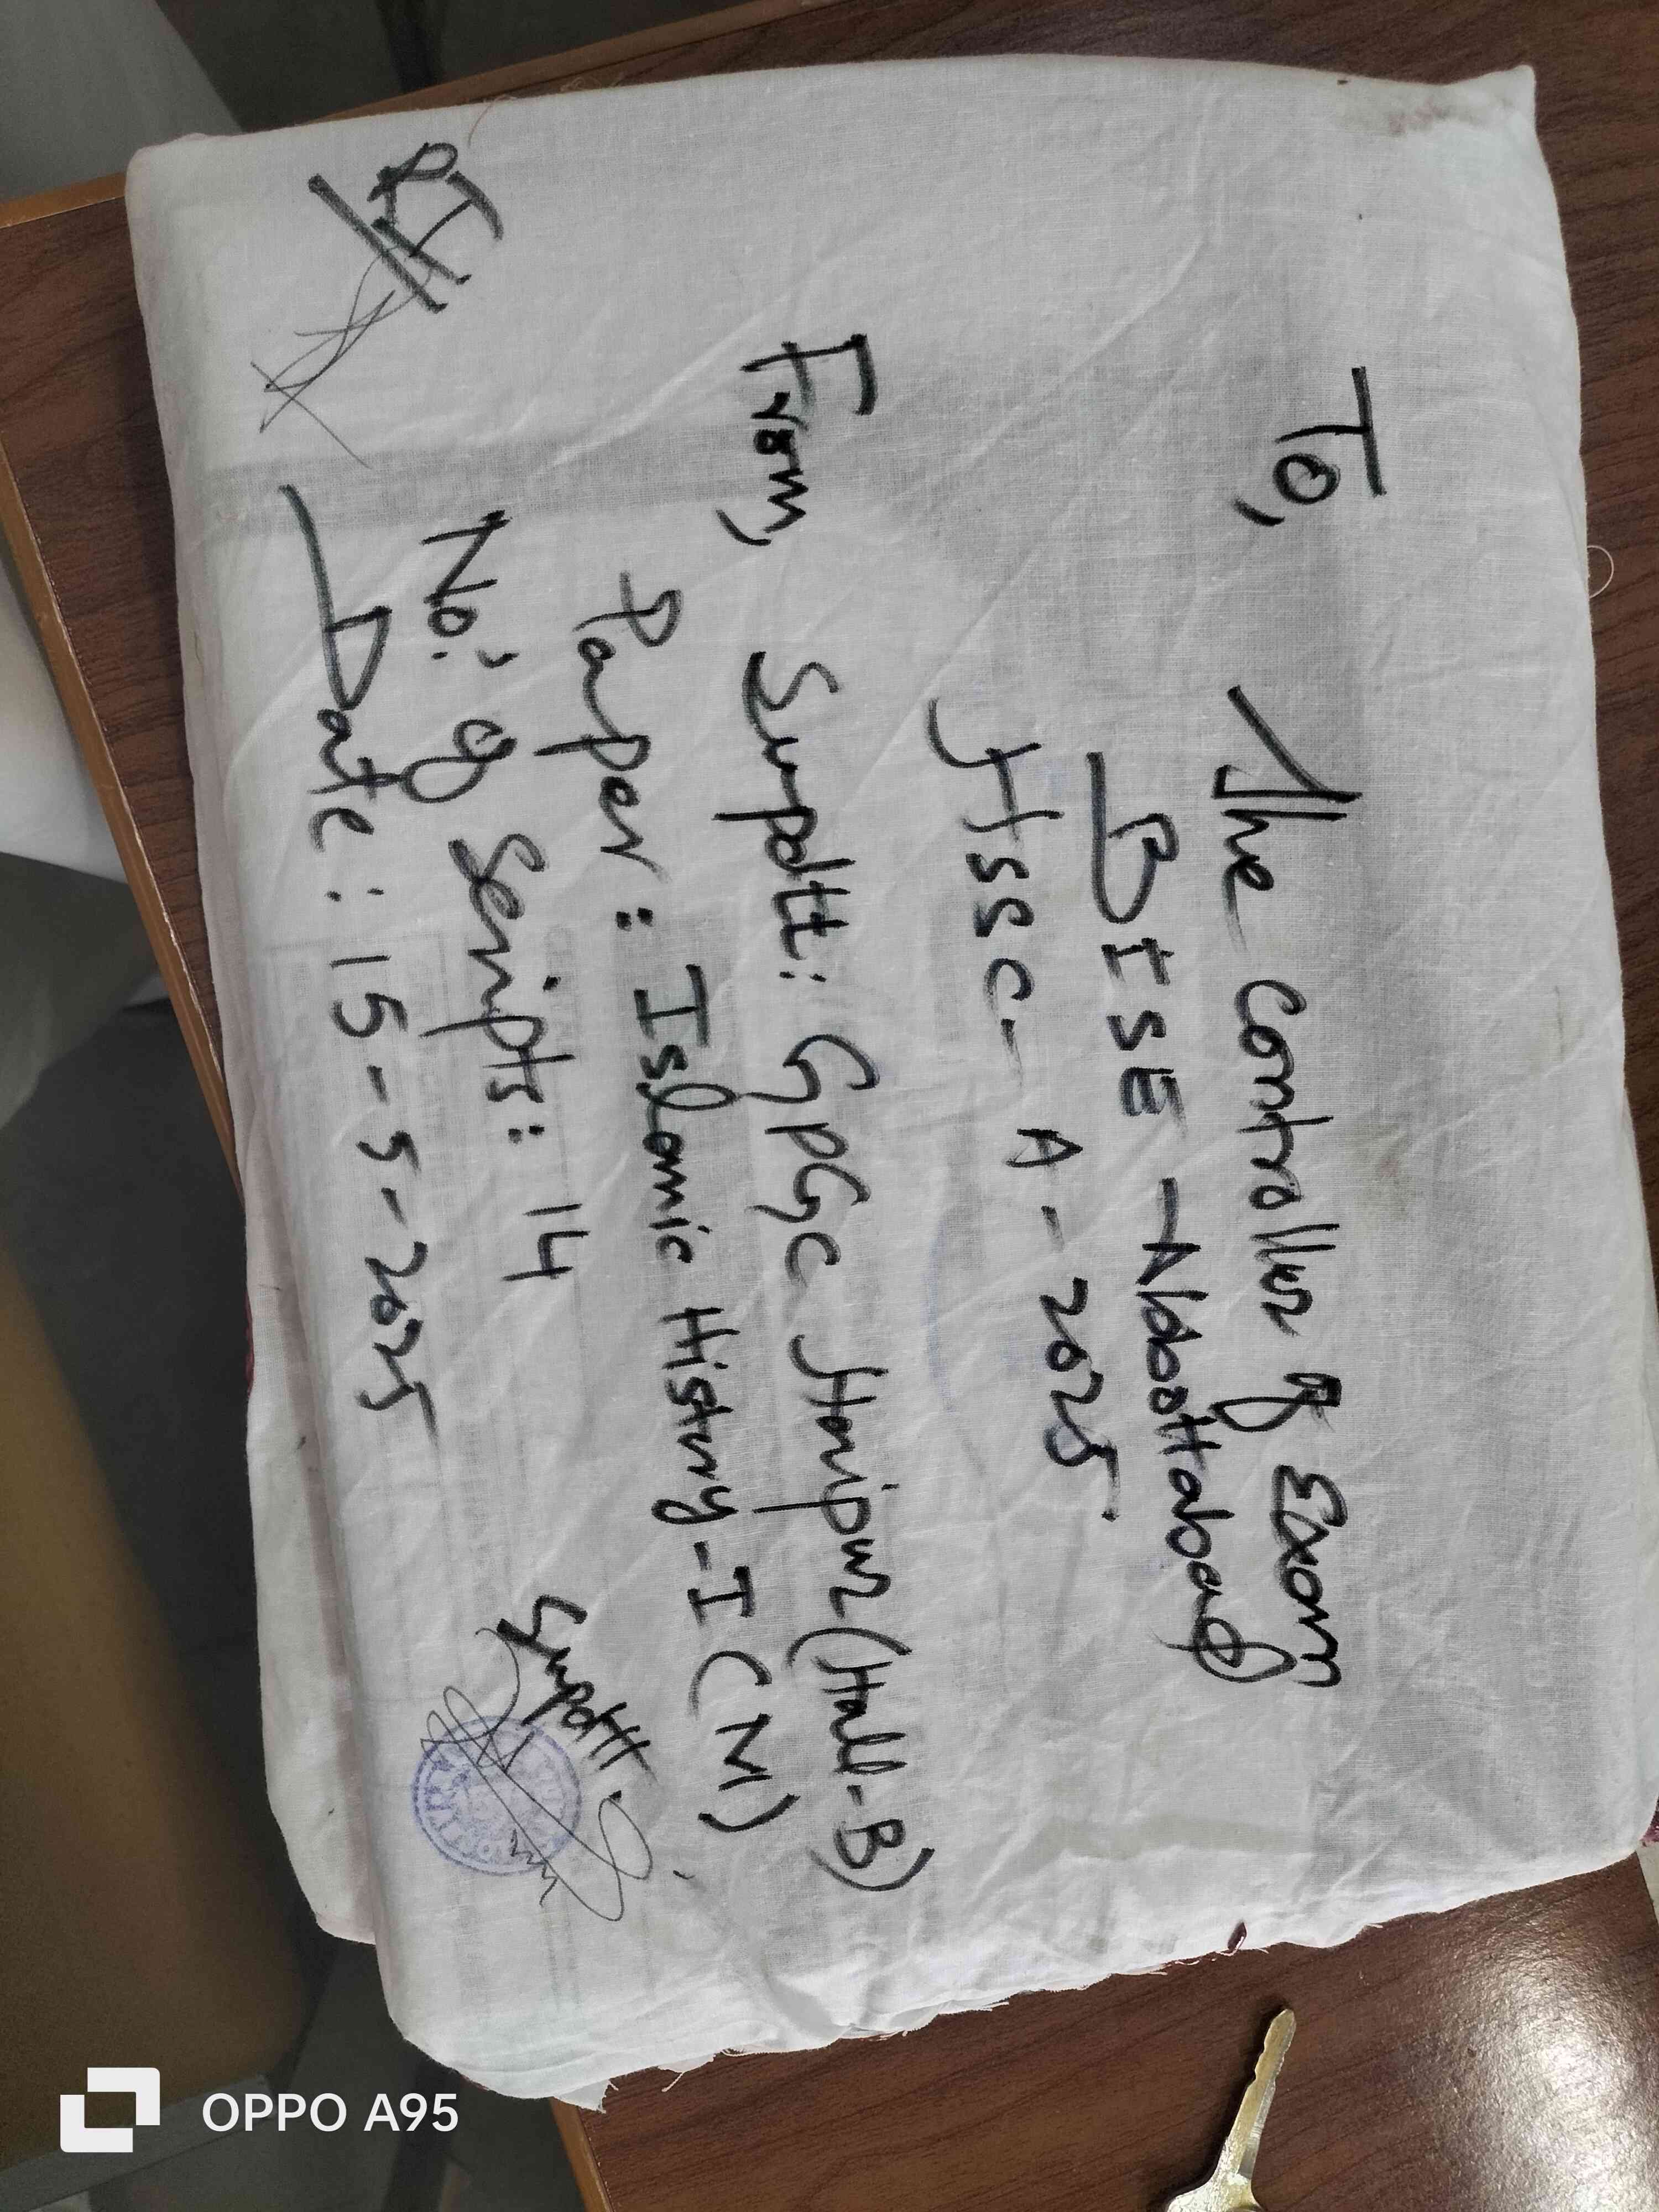 To,
The Controller of Exam
BISE - Abbottabad
HSSC - A - 2025
From,
Supdtt: GPGC Haripur (Hall-B)
Paper: Islamic History-I (M)
No: of Scripts: 14
Date: 15-5-2025
Supdtt.
OPPO A95